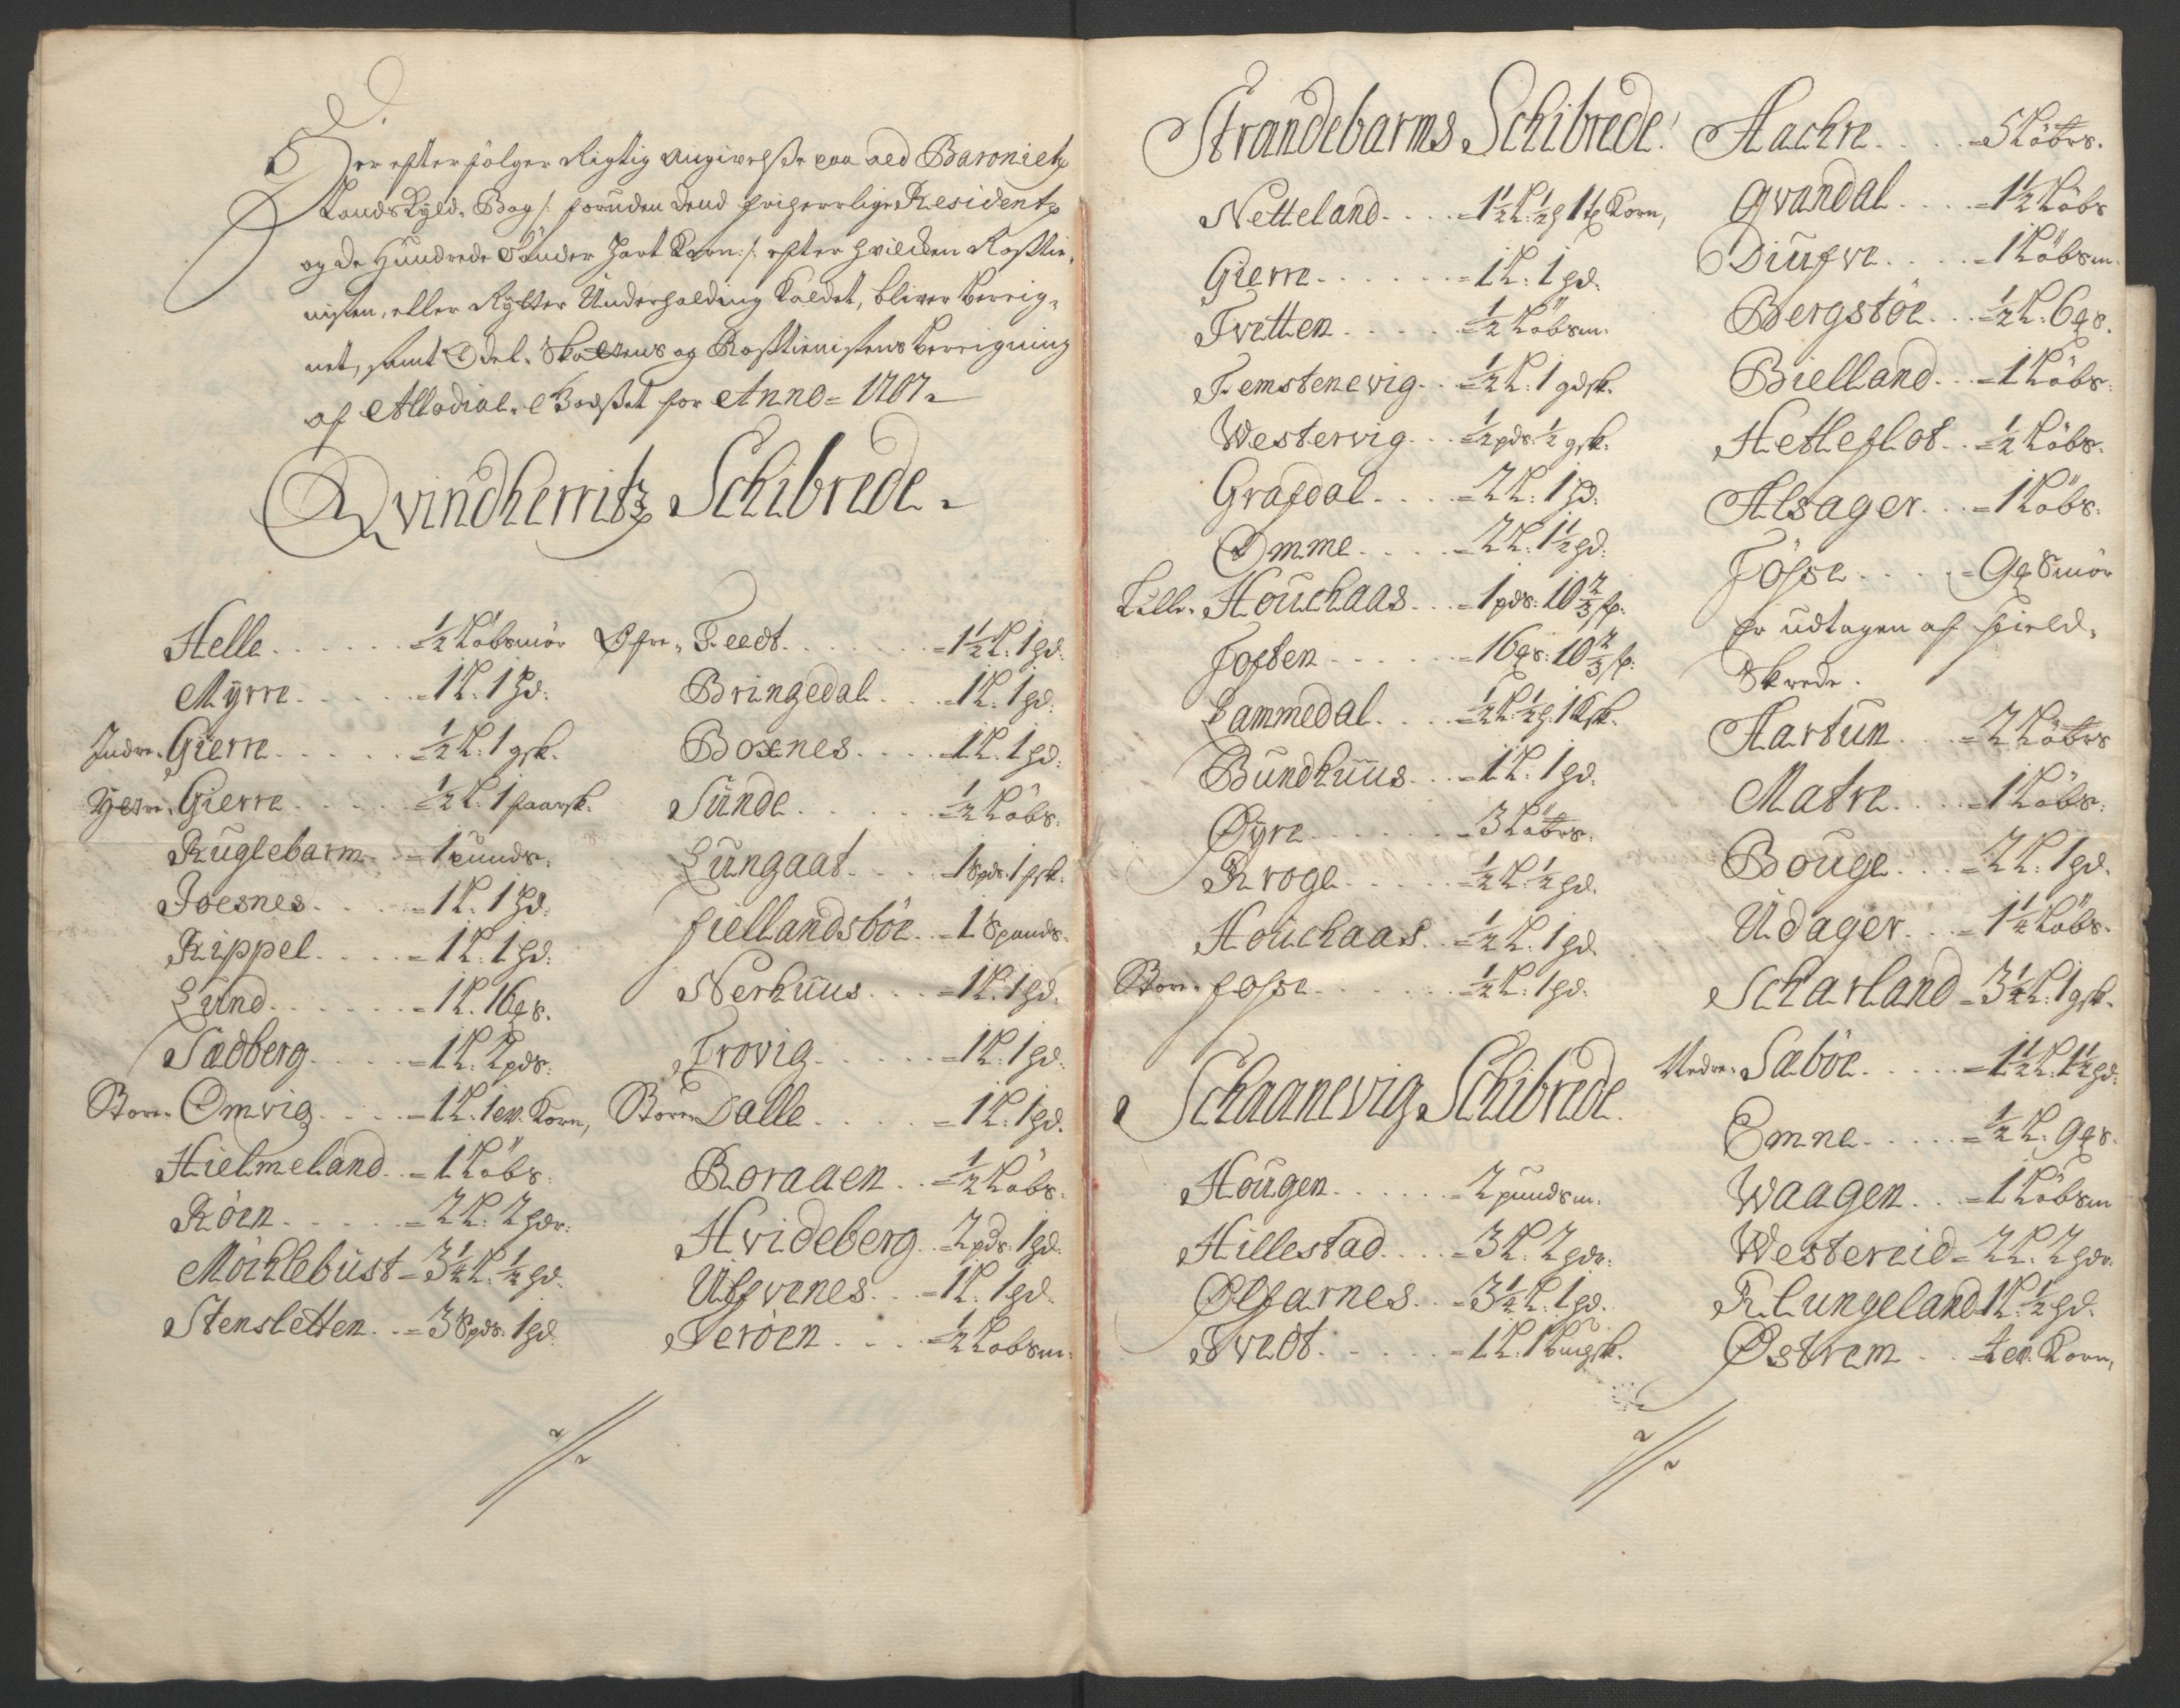 Her effterfølger Rigtig Angivelsse paa ald Baroniets
Landskyld-Bog /: foruden dend friherrlige Residentz
og de Hundrede Tönder Hart Korn :/ efter hvilcken Rosstie-
nisten, eller Rytter Underholding kaldet, bliver bereig-
net, samt Odel-Skattens og Rosstienistens bereigning
af Allodial-Godsset for Anno 1707
Qvindherritz Schibrede
Helle . . . . . . = ½ Löbsmör
Myrre . . . . . = 1 L: 1 hd:
Indre- Gierre . . . . . = ½ L: 1 gsk:
Ytre- Gierre . . . . . = ½ L: 1 faarsk:
Kuglebarm . . = 1 punds:
Joesnes . . . . = 1 L: 1 hd:
Kippel . . . . = 1 L: 1 hd:
Lund . . . . . . = 1 L: 16 ꝶs:
Sædberg . . . . . = 1 L: 2 pds:
Store- Omvig . . . . = 1 L: 1 en: Korn,
Hielmeland . . = 1 Löbs:
Röen . . . . . = 2 L: 2 hdr:
Möchlebust = 3¼ L: ½ hd:
Stensletten . . = 3 Spds: 1 hd:
Øfre- Feedt . . . . . . . = 1½ L: 1 hd:
Bringedal . . . = 1 L: 1 hd:
Boxnes . . . . = 1 L: 1 hd:
Sunde . . . . . . = ½ Löbs:
Lungaat . . . . = 1 Spd: 1 hsk:
Fiellandsböe . . = 1 Spands:
Nerhuus . . . = 1 L: 1 hd:
Trovig . . . . . = 1 L: 1 hd:
Store- Dalle . . . . . = 1 L: 1 hd:
Boraaen . . = ½ Löbs:
Hvideberg . . 2 pds: 1 hd:
Ulfvenes . . . = 1 L: 1 hd:
Teröen . . . . = ½ Löbsm:
Strandebarms Schibrede
Netteland . . . . = 1½ L: ½ h: 1 t Korn,
Gierre . . . . . . . = 1 L: 1 hd:
Tvetten . . . . . = ½ Löbsm:
Femstenevig . . = ½ L: 1 gdsk:
Westervig . . . = ½ pds: ½ gsk:
Grafdal . . . . = 2 L: 1 hd:
Omme . . . . = 2 L: 1½ hd:
Lille- Houchaas . . . = 1 pds: 10⅔ sk:
Tosten . . . . . . = 16 ꝶs: 10⅔ sk:
Lammedal . . . . = ½ L: ½ h: 1 Ksk:
Bundhuus . . . = 1 L: 1 hd:
Øyre . . . . . . . = 3 Löbrs:
Kroge . . . . . = ½ L: ½ hd:
Houchaas . . = ½ L: 1 hd:
Store- Fosse . . . . . . . = ½ L: 1 hd:
Schaanevig Schibrede
Hougen . . . . . . = 2 pundsm:
Hillestad . . . . = 3 L: 2 hdr:
Ølfarnes . . = 3¼ L: 1 hd:
Tvedt . . . . . . = 1 L: 1 bugsk:
Aachre . . . . . = 5 Löbrs:
Qvandal . . . . = 1½ Löbs
Diufve . . . . . = 1 Löbsm:
Bergstöe . . . = ½ L: 6 ꝶs:
Bielland . . . = 1 Löbs:
Hetleflot . . = ½ Löbs:
Alsager . . . = 1 Löbs:
Fosse . . . . . = 9 ꝶ Smör
Er udtagen af Field-
Skrede.
Aartun . . . = 2 Löbrs
Matre . . . . = 1 Löbs:
Bouge . . . = 2 L: 1 hd:
Udager . . . = 1¼ Löbs:
Scharland = 3¼ L: 1 gsk:
Nedre- Sæböe . . . . . = 1½ L: 1½ hd:
Emne . . . . . = ½ L: 9 ꝶs:
Waagen . . . = 1 Löbsm
Westereid = 2 L: 2 hdr:
Klungeland = 1 L: ½ hd:
Østrem . . 4 en: Korn,